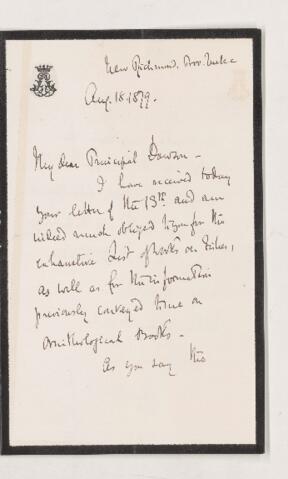 New Richmond. Prov. Quebec
Aug. 18. 1879.
My dear Principal Dawson -
I have received today
your letter of the 13th and am
indeed much obliged to you for the
exhaustive list of books on Fishes,
as well as for the information
previously conveyed to me on
Ornithological Books -
As you say this